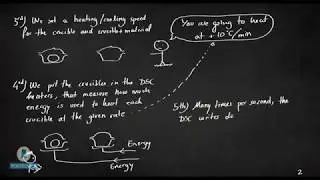 3rd) We set a heating/cooling speed
for the crucible and crucible+material
You are going to heat
at +10°C/min
4rd) We put the crucibles in the DSC
heaters, that measure how much
energy is used to heat each
crucible at the given rate
5th) Many times per second, the
DSC writes do
Energy
Energy
2